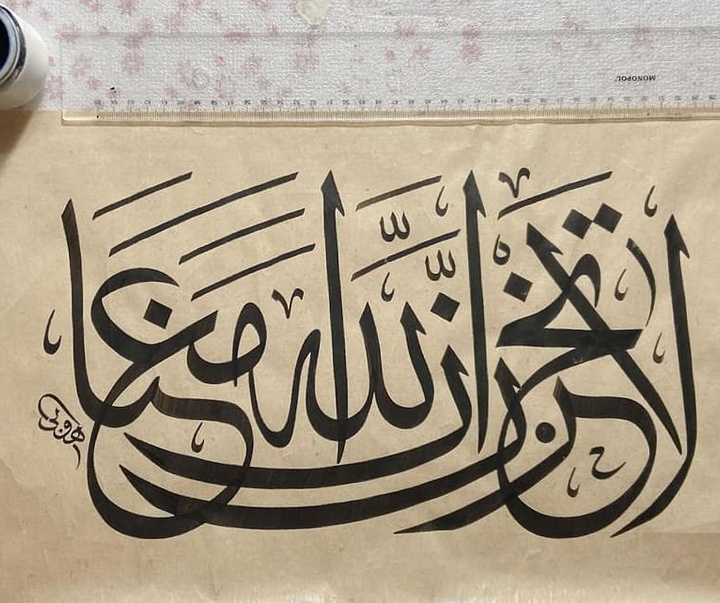 لا تحزن إن الله معنا
MONOPOL